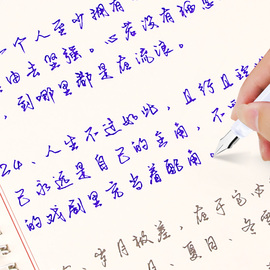 一个人至少拥有
由去坚强。心若没有栖息
，到哪里都是在流浪。
24、人生不过如此，且行且
己永远是自己的主角，不
的戏剧里充当着配角。
岁月极美，在于它
、夏日、冬雪